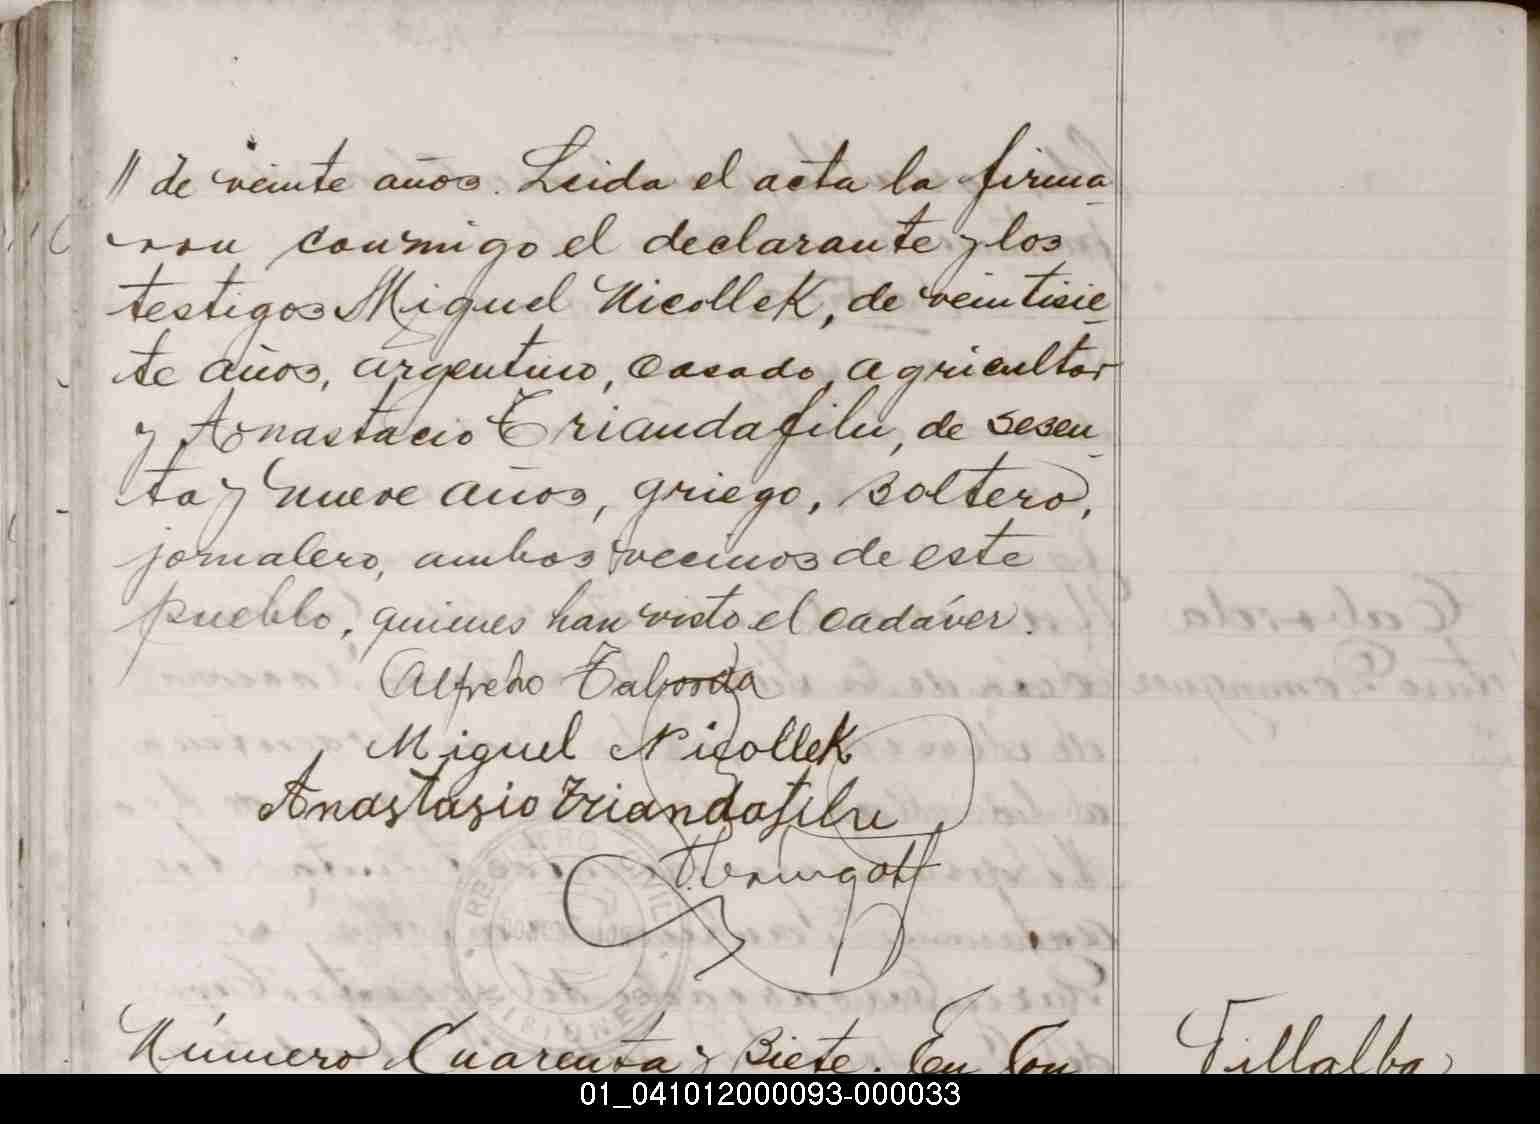 // de veinte años. Leida el acta la firma-
ron conmigo el declarante y los
testigos Miguel Nicollek, de veintisie-
te años, argentino, casado, agricultor
y Anastacio Triandafilu, de sesen-
ta y nueve años, griego, soltero,
jornalero, ambos vecinos de este
pueblo, quienes han visto el cadáver.
Alfredo Taborda
Miguel Nicollek
Anastasio Triandafilu
Número Cuarenta y siete. En Con
Villalba
01_041012000093-000033